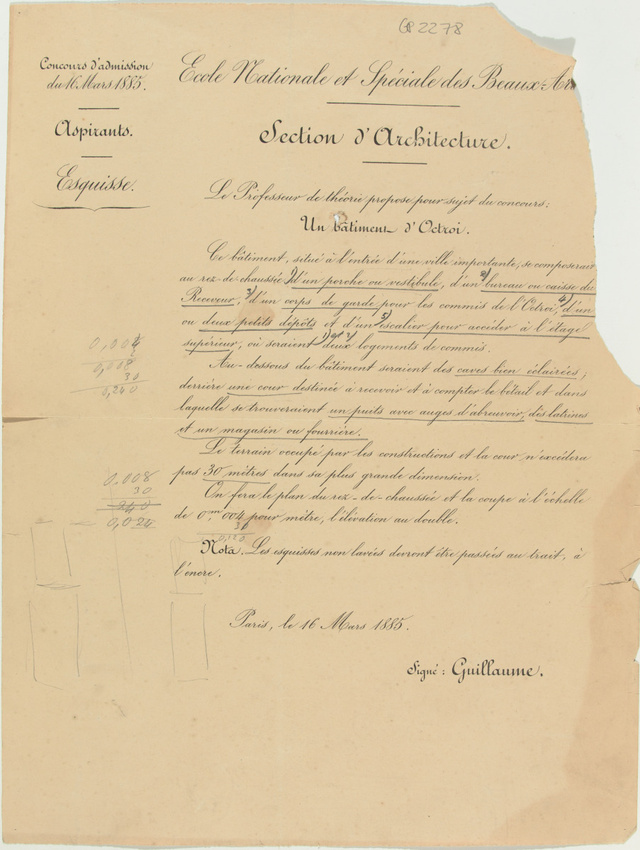 GP 2278
Concours d'admission
du 16 Mars 1885.
Aspirants.
Esquisse.
Ecole Nationale et Spéciale des Beaux-Ar
Section d'Architecture.
Le Professeur de théorie propose pour sujet du concours:
Un bâtiment d'Octroi.
Ce bâtiment, situé à l'entrée d'une ville importante, se composerait
au rez-de-chaussée 1) d'un porche ou vestibule, d'un 2) bureau ou caisse du
Receveur, 3) d'un corps de garde pour les commis de l'Octroi, 4) d'un
ou deux petits dépôts et d'un 5) escalier pour accéder à l'étage
supérieur, où seraient deux logements de commis.
Au-dessous du bâtiment seraient des caves bien éclairées;
derrière une cour destinée à recevoir et à compter le bétail et dans
laquelle se trouveraient un puits avec auges d'abreuvoir, des latrines
et un magasin ou fourrière.
Le terrain occupé par les constructions et la cour n'excédera
pas 30 mètres dans sa plus grande dimension.
On fera le plan du rez-de-chaussée et la coupe à l'échelle
de 0m 004 pour mètre, l'élévation au double.
Nota. Les esquisses non lavées devront être passées au trait, à
l'encre.
Paris, le 16 Mars 1885.
Signé: Guillaume.
0,004
0,008
30
0,240
0,008
30
240
0,024
30